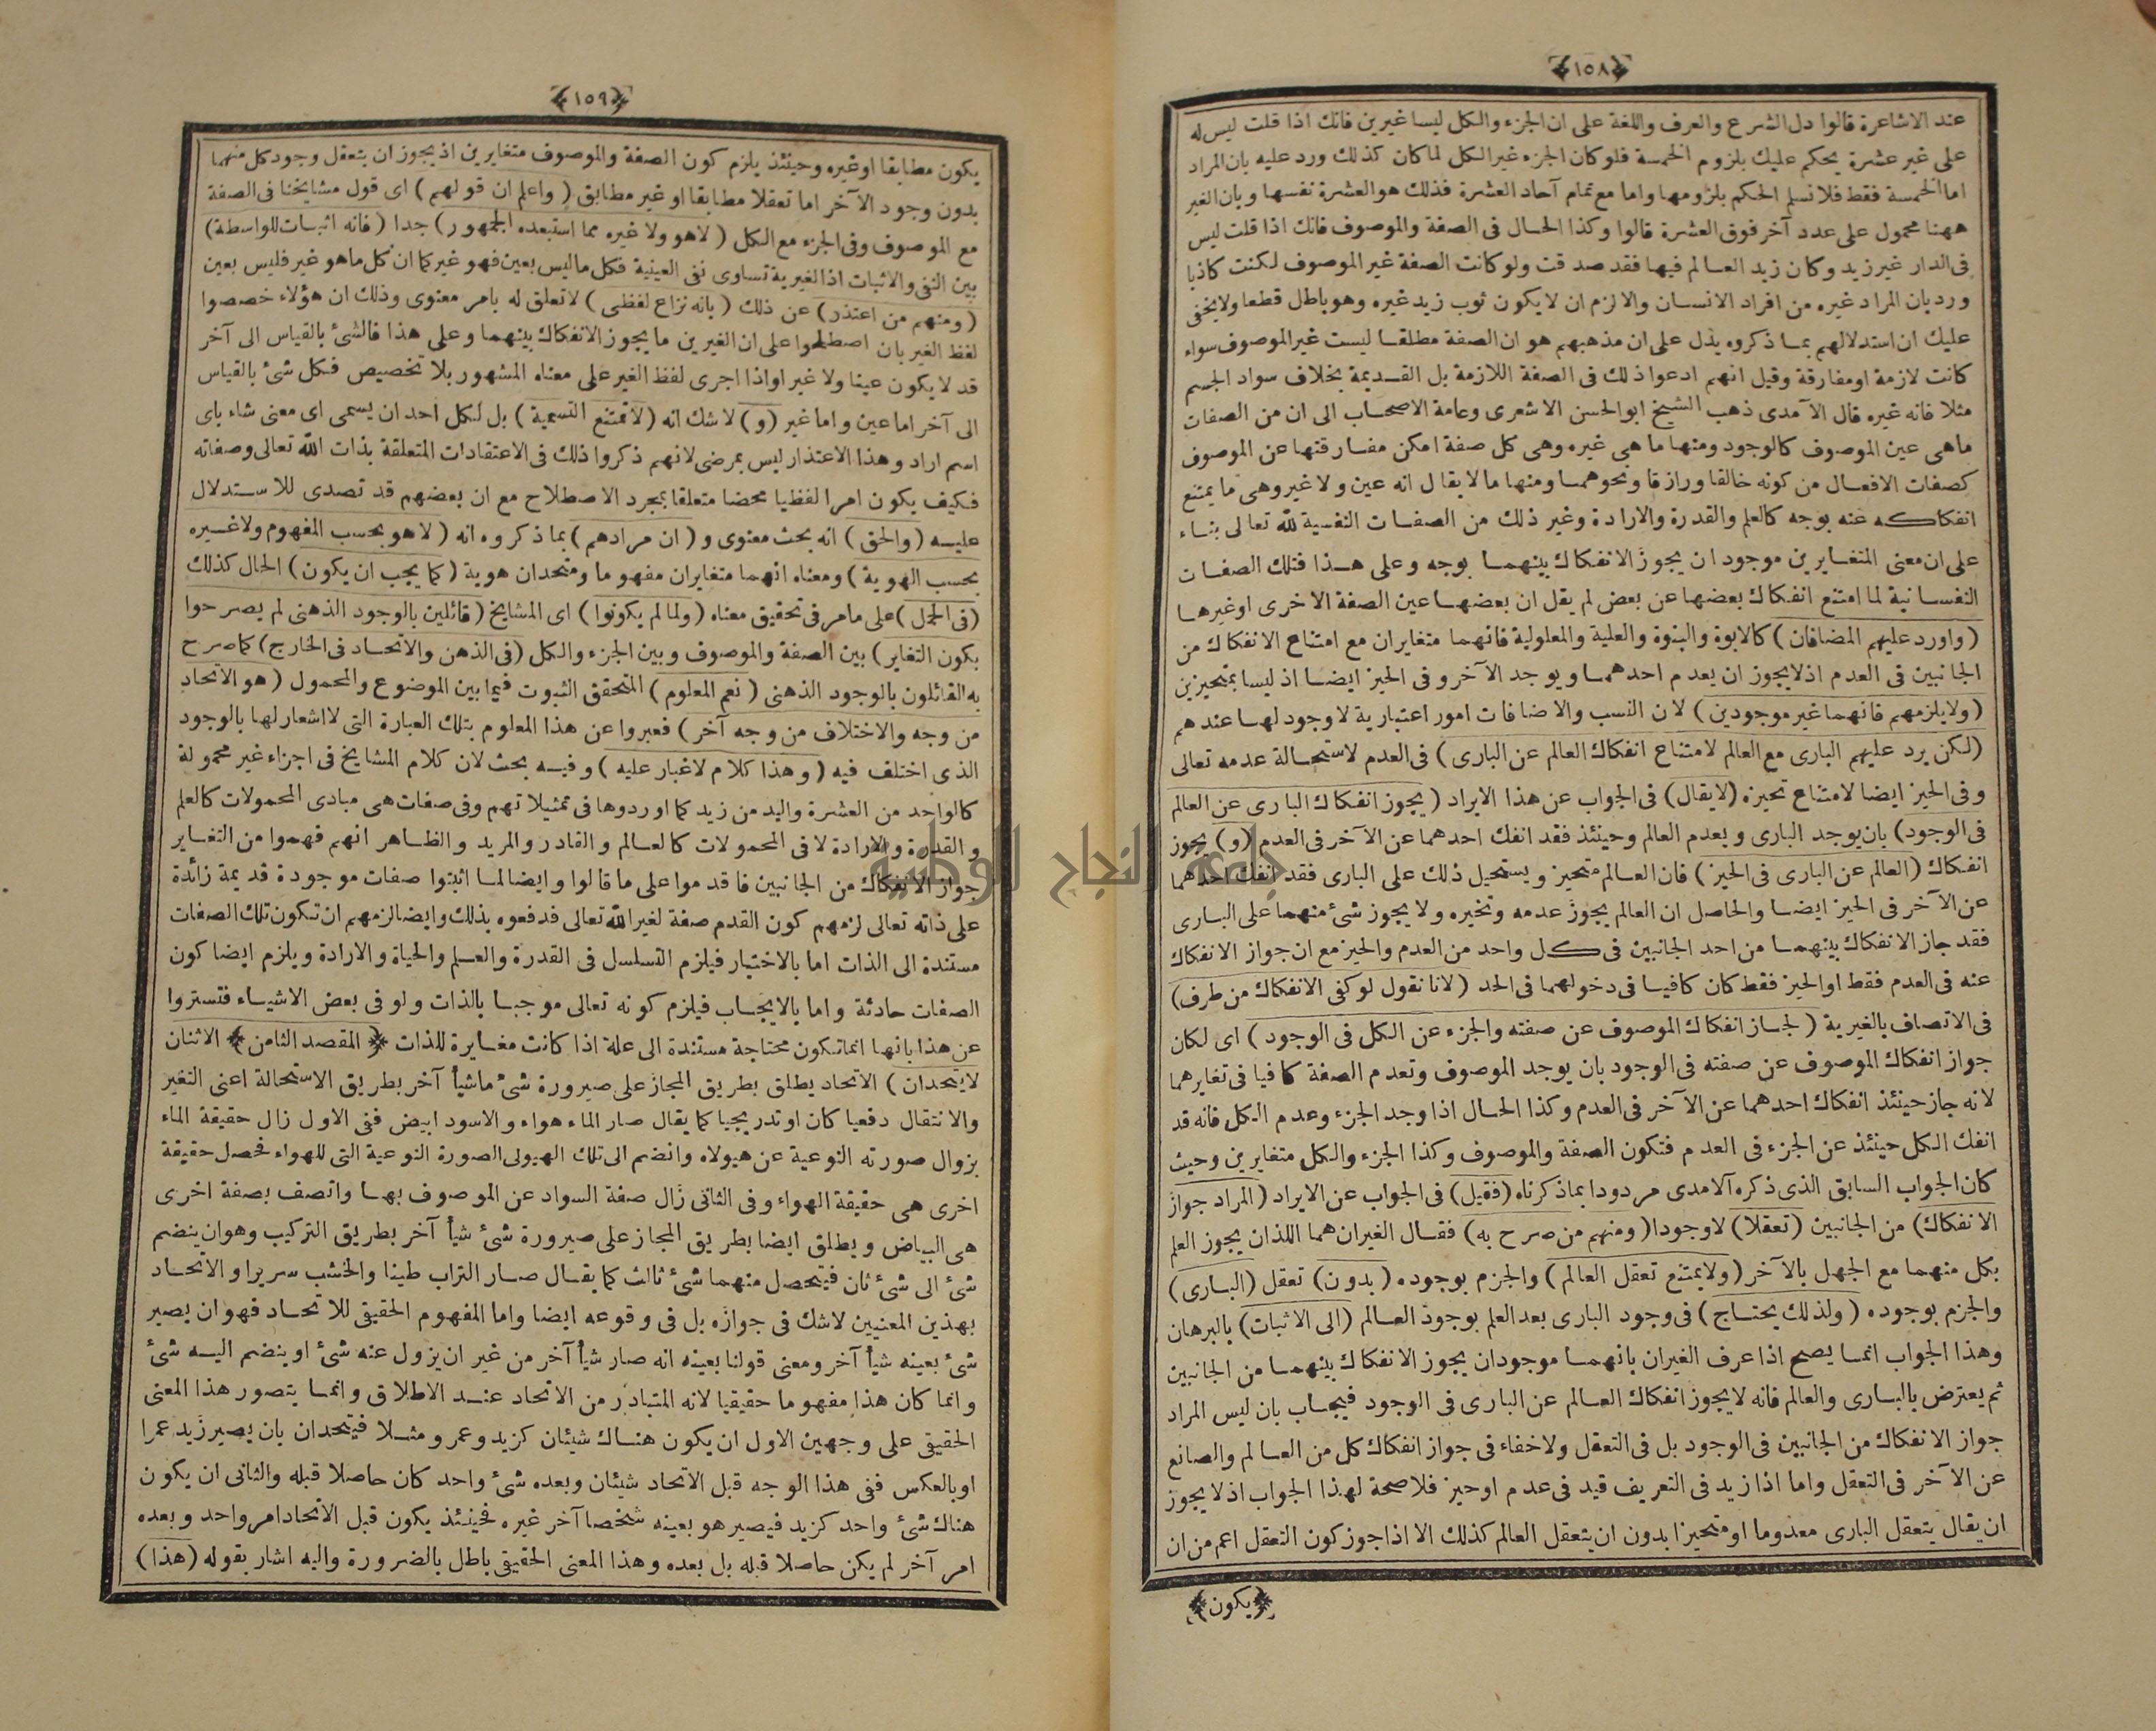 ﴿١٥٨﴾
عند الاشاعرة قالوا دل الشرع والعرف واللغة على ان الجزء والكل ليسا غيرين فانك اذا قلت ليس له
على غير عشرة يحكم عليك بلزوم الخمسة فلو كان الجزء غير الكل لما كان كذلك ورد عليه بان المراد
اما الخمسة فقط فلا نسلم الحكم بلزومها واما مع تمام آحاد العشرة فذلك هو العشرة نفسها وبان الغير
ههنا محمول على عدد آخر فوق العشرة قالوا وكذا الحال فى الصفة والموصوف فانك اذا قلت ليس
فى الدار غير زيد وكان زيد العالم فيها فقد صدقت ولو كانت الصفة غير الموصوف لكنت كاذبا
ورد بان المراد غيره من افراد الانسان والا لزم ان لا يكون ثوب زيد غيره وهو باطل قطعا ولا يخفى
عليك ان استدلالهم بما ذكروه يدل على ان مذهبهم هو ان الصفة مطلقا ليست غير الموصوف سواء
كانت لازمة او مفارقة وقيل انهم ادعوا ذلك فى الصفة اللازمة بل القديمة بخلاف سواد الجسم
مثلا فانه غيره قال الآمدى ذهب الشيخ ابو الحسن الاشعرى وعامة الاصحاب الى ان من الصفات
ماهى عين الموصوف كالوجود ومنها ما هى غيره وهى كل صفة امكن مفارقتها عن الموصوف
كصفات الافعال من كونه خالقا ورازقا ونحوهما ومنها ما لا يقال انه عين ولا غير وهى ما يمتنع
انفكاكه عنه بوجه كالعلم والقدرة والارادة وغير ذلك من الصفات النفسية لله تعالى بناء
على ان معنى المتغايرين موجودان يجوز الانفكاك بينهما بوجه وعلى هذا فتلك الصفات
النفسانية لما امتنع انفكاك بعضها عن بعض لم يقل ان بعضها عين الصفة الاخرى او غيرها
(واورد عليهم المضافان) كالابوة والبنوة والعلية والمعلولية فانهما متغايران مع امتناع الانفكاك من
الجانبين فى العدم اذ لا يجوز ان يعدم احدهما ويوجد الآخر وفى الحيز ايضا اذ ليسا بمتحيزين
(ولا يلزمهم فانهما غير موجودين) لان النسب والاضافات امور اعتبارية لا وجود لها عندهم
(لكن يرد عليهم البارى مع العالم لامتناع انفكاك العالم عن البارى) فى العدم لاستحالة عدمه تعالى
وفى الحيز ايضا لامتناع تحيزه (لا يقال) فى الجواب عن هذا الايراد (يجوز انفكاك البارى عن العالم
فى الوجود) بان يوجد البارى ويعدم العالم وحينئذ فقد انفك احدهما عن الآخر فى العدم (و) يجوز
انفكاك (العالم عن البارى فى الحيز) فان العالم متحيز ويستحيل ذلك على البارى فقد انفك احدهما
عن الآخر فى الحيز ايضا والحاصل ان العالم يجوز عدمه وتحيزه ولا يجوز شئ منهما على البارى
فقد جاز الانفكاك بينهما من احد الجانبين فى كل واحد من العدم والحيز مع ان جواز الانفكاك
عنه فى العدم فقط او الحيز فقط كان كافيا فى دخولهما فى الحد (لانا نقول لو كفى الانفكاك من طرف)
فى الاتصاف بالغيرية (لجاز انفكاك الموصوف عن صفته والجزء عن الكل فى الوجود) اى لكان
جواز انفكاك الموصوف عن صفته فى الوجود بان يوجد الموصوف وتعدم الصفة كافيا فى تغايرهما
لانه جاز حينئذ انفكاك احدهما عن الآخر فى العدم وكذا الحال اذا وجد الجزء وعدم الكل فانه قد
انفك الكل حينئذ عن الجزء فى العدم فتكون الصفة والموصوف وكذا الجزء والكل متغايرين وحيث
كان الجواب السابق الذى ذكره الآمدى مردودا بما ذكرناه (فقيل) فى الجواب عن الايراد (المراد جواز
الانفكاك) من الجانبين (تعقلا) لا وجودا (ومنهم من صرح به) فقال الغيران هما اللذان يجوز العلم
بكل منهما مع الجهل بالآخر (ولا يمتنع تعقل العالم) والجزم بوجوده (بدون) تعقل (البارى)
والجزم بوجوده (ولذلك يحتاج) فى وجود البارى بعد العلم بوجود العالم (الى الاثبات) بالبرهان
وهذا الجواب انما يصح اذا عرف الغيران بانهما موجودان يجوز الانفكاك بينهما من الجانبين
ثم يعترض بالبارى والعالم فانه لا يجوز انفكاك العالم عن البارى فى الوجود فيجاب بان ليس المراد
جواز الانفكاك من الجانبين فى الوجود بل فى التعقل ولا خفاء فى جواز انفكاك كل من العالم والصانع
عن الآخر فى التعقل واما اذا زيد فى التعريف قيد فى عدم او حيز فلا صحة لهذا الجواب اذ لا يجوز
ان يقال يتعقل البارى معدوما او متحيزا بدون ان يتعقل العالم كذلك الا اذا جوز كون التعقل اعم من ان
﴿يكون﴾
﴿١٥٩﴾
يكون مطابقا او غيره وحينئذ يلزم كون الصفة والموصوف متغايرين اذ يجوز ان يتعقل وجود كل منهما
بدون وجود الآخر اما تعقلا مطابقا او غير مطابق (واعلم ان قولهم) اى قول مشايخنا فى الصفة
مع الموصوف وفى الجزء مع الكل (لا هو ولا غيره مما استبعده الجمهور) جدا (فانه اثبات للواسطة)
بين النفى والاثبات اذ الغيرية تساوى نفى العينية فكل ما ليس بعين فهو غير كما ان كل ما هو غير فليس بعين
(ومنهم من اعتذر) عن ذلك (بانه نزاع لفظى) لا تعلق له بامر معنوى وذلك ان هؤلاء خصصوا
لفظ الغير بان اصطلحوا على ان الغيرين ما يجوز الانفكاك بينهما وعلى هذا فالشئ بالقياس الى آخر
قد لا يكون عينا ولا غيرا واذا اجرى لفظ الغير على معناه المشهور بلا تخصيص فكل شئ بالقياس
الى آخر اما عين واما غير (و) لا شك انه (لا تمتنع التسمية) بل لكل احد ان يسمى اى معنى شاء باى
اسم اراد وهذا الاعتذار ليس بمرضى لانهم ذكروا ذلك فى الاعتقادات المتعلقة بذات الله تعالى وصفاته
فكيف يكون امرا لفظيا محضا متعلقا بمجرد الاصطلاح مع ان بعضهم قد تصدى للاستدلال
عليه (والحق) انه بحث معنوى و(ان مرادهم) بما ذكروه انه (لا هو بحسب المفهوم ولا غيره
بحسب الهوية) ومعناه انهما متغايران مفهوما ومتحدان هوية (كما يجب ان يكون) الحال كذلك
(فى الحمل) على ما مر فى تحقيق معناه (ولما لم يكونوا) اى المشايخ (قائلين بالوجود الذهنى لم يصرحوا
بكون التغاير) بين الصفة والموصوف وبين الجزء والكل (فى الذهن والاتحاد فى الخارج) كما صرح
به القائلون بالوجود الذهنى (نعم المعلوم) المتحقق الثبوت فيما بين الموضوع والمحمول (هو الاتحاد
من وجه والاختلاف من وجه آخر) فعبروا عن هذا المعلوم بتلك العبارة التى لا اشعار لها بالوجود
الذى اختلف فيه (وهذا كلام لا غبار عليه) وفيه بحث لان كلام المشايخ فى اجزاء غير محمولة
كالواحد من العشرة واليد من زيد كما اوردوها فى تمثيلاتهم وفى صفات هى مبادى المحمولات كالعلم
والقدرة والارادة لا فى المحمولات كالعالم والقادر والمريد والظاهر انهم فهموا من التغاير
جواز الانفكاك من الجانبين فاقدموا على ما قالوا وايضا لما اثبتوا صفات موجودة قديمة زائدة
على ذاته تعالى لزمهم كون القدم صفة لغير الله تعالى فدفعوه بذلك وايضا لزمهم ان تكون تلك الصفات
مستندة الى الذات اما بالاختيار فيلزم التسلسل فى القدرة والعلم والحياة والارادة ويلزم ايضا كون
الصفات حادثة واما بالايجاب فيلزم كونه تعالى موجبا بالذات ولو فى بعض الاشياء فتستروا
عن هذا بانها انما تكون محتاجة مستندة الى علة اذا كانت مغايرة للذات ﴿المقصد الثامن﴾ الاثنان
لا يتحدان) الاتحاد يطلق بطريق المجاز على صيرورة شئ ما شيأ آخر بطريق الاستحالة اعنى التغير
والانتقال دفعيا كان او تدريجيا كما يقال صار الماء هواء والاسود ابيض ففى الاول زال حقيقة الماء
بزوال صورته النوعية عن هيولاه وانضم الى تلك الهيولى الصورة النوعية التى للهواء فحصل حقيقة
اخرى هى حقيقة الهواء وفى الثانى زال صفة السواد عن الموصوف بها واتصف بصفة اخرى
هى البياض ويطلق ايضا بطريق المجاز على صيرورة شئ شيأ آخر بطريق التركيب وهو ان ينضم
شئ الى شئ ثان فيتحصل منهما شئ ثالث كما يقال صار التراب طينا والخشب سريرا والاتحاد
بهذين المعنيين لا شك فى جوازه بل فى وقوعه ايضا واما المفهوم الحقيقى للاتحاد فهو ان يصير
شئ بعينه شيأ آخر ومعنى قولنا بعينه انه صار شيأ آخر من غير ان يزول عنه شئ او ينضم اليه شئ
وانما كان هذا مفهوما حقيقيا لانه المتبادر من الاتحاد عند الاطلاق وانما يتصور هذا المعنى
الحقيقى على وجهين الاول ان يكون هناك شيئان كزيد وعمرو مثلا فيتحدان بان يصير زيد عمرا
او بالعكس ففى هذا الوجه قبل الاتحاد شيئان وبعده شئ واحد كان حاصلا قبله والثانى ان يكون
هناك شئ واحد كزيد فيصير هو بعينه شخصا آخر غيره فحينئذ يكون قبل الاتحاد امر واحد وبعده
امر آخر لم يكن حاصلا قبله بل بعده وهذا المعنى الحقيقى باطل بالضرورة واليه اشار بقوله (هذا)
جامعة النجاح الوطنية